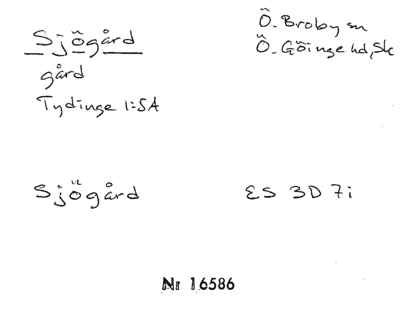 Sjögård
gård
Tydinge 1:5A
Ö. Broby sn
Ö. Göinge hd, Sk
Sjögård
ES 3D 7i
Nr 16586